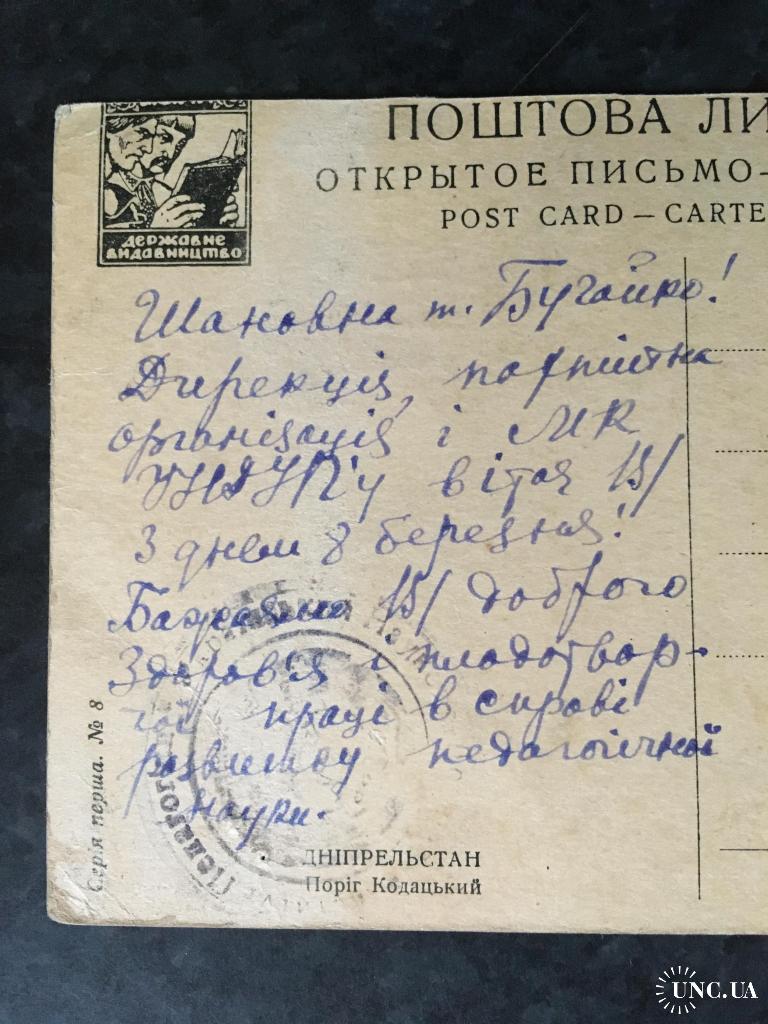 ДЕРЖАВНЕ
ВИДАВНИЦТВО
ПОШТОВА ЛИ
ОТКРЫТОЕ ПИСЬМО-
POST CARD — CARTE
Шановна т. Бугайко!
Дирекція, партійна
організація і МК
УНДІПіу вітає В/
З днем 8 березня!
Бажаємо В/ доброго
здоров'я і плодотвор-
ної праці в справі
розвитку педагогічної
науки.
Серія перша. № 8
ДНІПРЕЛЬСТАН
Поріг Кодацький
UNC.UA